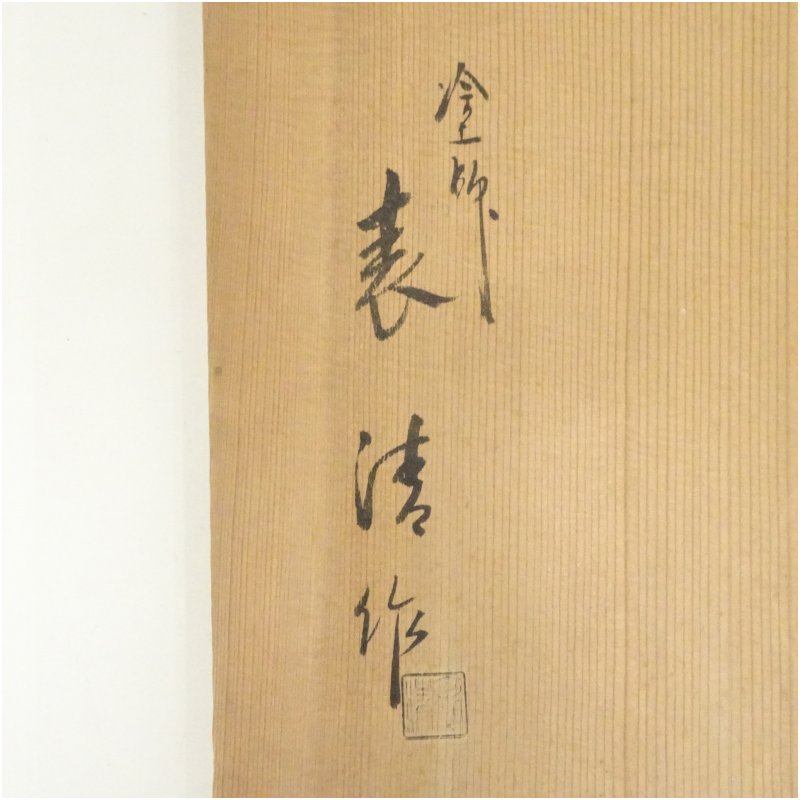 塗師
表清作